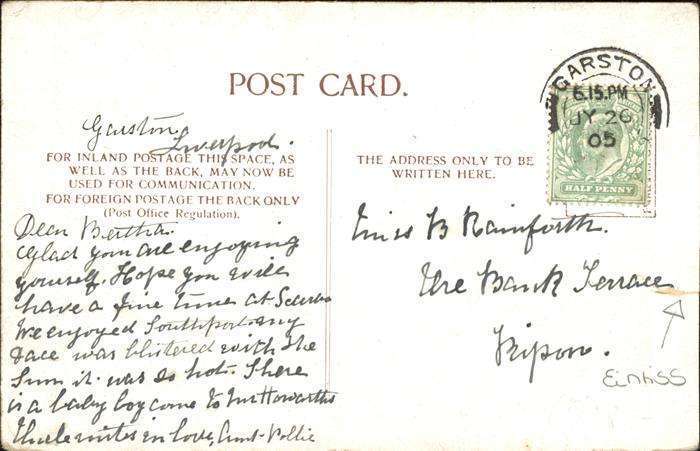 POST CARD.
GARSTON
6.15.PM
JY 26
05
HALF PENNY
Garston,
Liverpool.
FOR INLAND POSTAGE THIS SPACE, AS
WELL AS THE BACK, MAY NOW BE
USED FOR COMMUNICATION.
FOR FOREIGN POSTAGE THE BACK ONLY
(Post Office Regulation).
THE ADDRESS ONLY TO BE
WRITTEN HERE.
Dear Bertha.
Glad you are enjoying
yourself. Hope you will
have a fine time at Scarbro
We enjoyed Southport my
face was blistered with the
Sun it was so hot. There
is a baby boy come to Mr Howarths
Uncle unites in love, Aunt Pollie
Miss B Rainforth.
Ure Bank Terrace
Ripon.